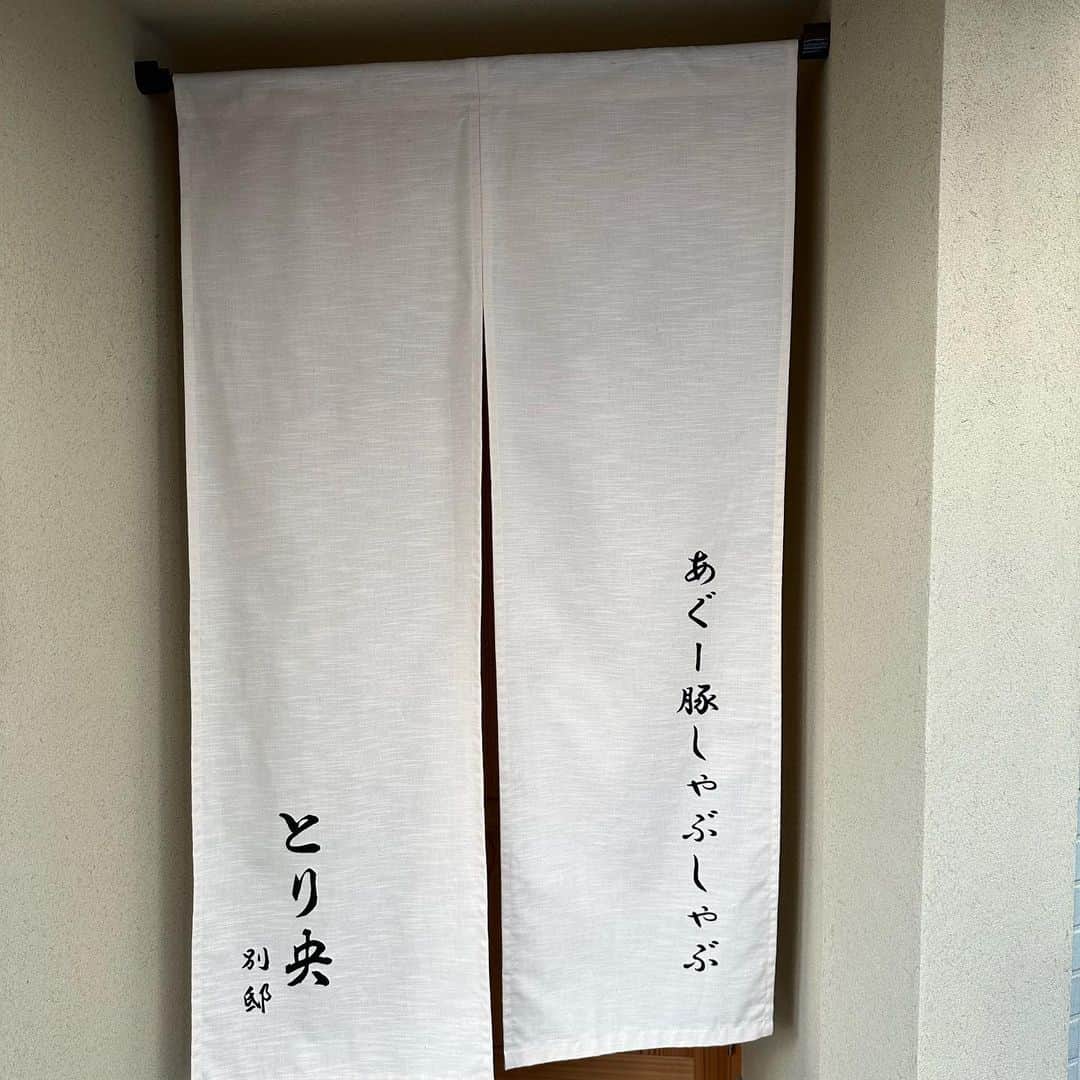 あぐー豚しゃぶしゃぶ
とり央
別邸